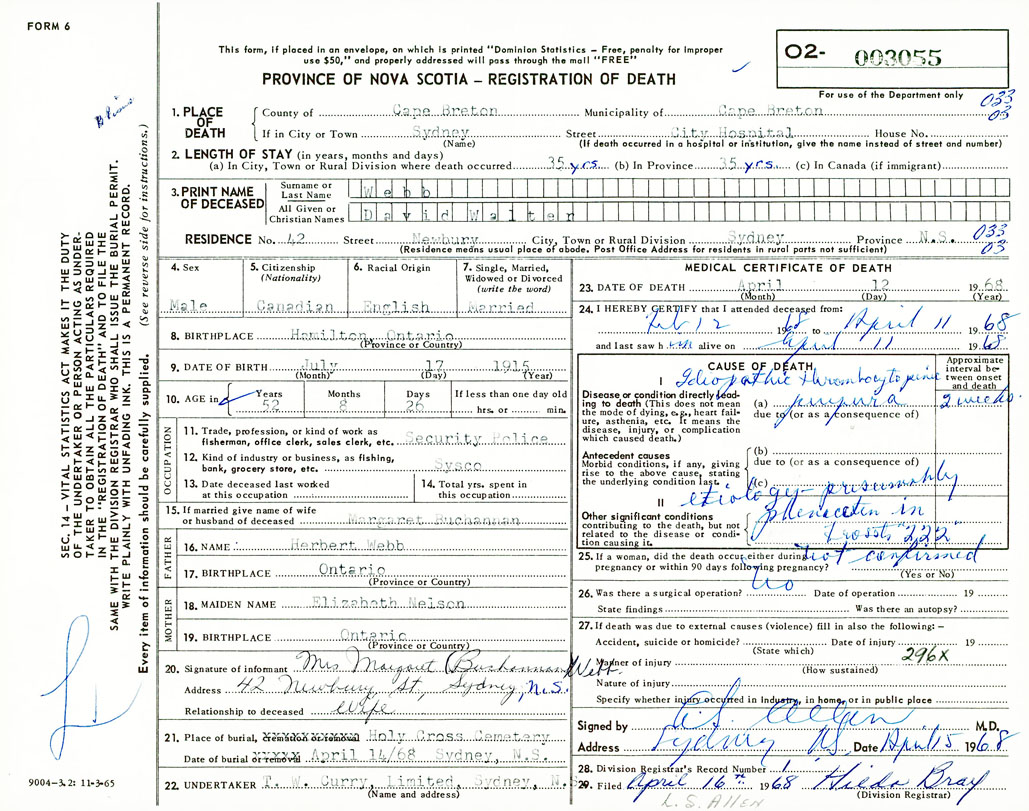 FORM 6
This form, if placed in an envelope, on which is printed "Dominion Statistics – Free, penalty for improper
use $50," and properly addressed will pass through the mail "FREE"
PROVINCE OF NOVA SCOTIA – REGISTRATION OF DEATH
O2- 003055
For use of the Department only
033
03
1. PLACE OF DEATH
County of Cape Breton Municipality of Cape Breton
If in City or Town Sydney Street City Hospital House No.
(Name) (If death occurred in a hospital or institution, give the name instead of street and number)
2. LENGTH OF STAY (in years, months and days)
(a) In City, Town or Rural Division where death occurred 35 yrs. (b) In Province 35 yrs. (c) In Canada (if immigrant)
3. PRINT NAME OF DECEASED
Surname or Last Name Webb
All Given or Christian Names David Walter
RESIDENCE No. 42 Street Newbury City, Town or Rural Division Sydney Province N.S.
(Residence means usual place of abode. Post Office Address for residents in rural parts not sufficient)
033
03
4. Sex
Male
5. Citizenship
(Nationality)
Canadian
6. Racial Origin
English
7. Single, Married,
Widowed or Divorced
(write the word)
Married
8. BIRTHPLACE Hamilton Ontario
(Province or Country)
9. DATE OF BIRTH July 17 1915
(Month) (Day) (Year)
10. AGE in
Years Months Days If less than one day old
52 8 26 hrs. or min.
OCCUPATION
11. Trade, profession, or kind of work as
fisherman, office clerk, sales clerk, etc. Security Police
12. Kind of industry or business, as fishing,
bank, grocery store, etc. Sysco
13. Date deceased last worked
at this occupation
14. Total yrs. spent in
this occupation
15. If married give name of wife
or husband of deceased Margaret Buchannan
FATHER
16. NAME: Herbert Webb
17. BIRTHPLACE Ontario
(Province or Country)
MOTHER
18. MAIDEN NAME Elizabeth Nelson
19. BIRTHPLACE Ontario
(Province or Country)
20. Signature of informant Mrs Margaret (Buchannan) Webb
Address 42 Newbury St, Sydney, N.S.
Relationship to deceased Wife
21. Place of burial, cremation or removal Holy Cross Cemetary
Date of burial or removal April 14/68 Sydney, N.S.
22. UNDERTAKER T. W. Curry, Limited, Sydney, N.S.
(Name and address)
MEDICAL CERTIFICATE OF DEATH
23. DATE OF DEATH April 12 1968
(Month) (Day) (Year)
24. I HEREBY CERTIFY that I attended deceased from:
Feb 12 1968 to April 11 1968
and last saw him alive on April 11 1968
CAUSE OF DEATH
Approximate interval between onset and death
I Idiopathic thrombocytopenic
Disease or condition directly leading to death (This does not mean the mode of dying, e.g., heart failure, asthenia, etc. It means the disease, injury, or complication which caused death.)
(a) purpura 2 weeks.
due to (or as a consequence of)
Antecedent causes
Morbid conditions, if any, giving rise to the above cause, stating the underlying condition last.
(b)
due to (or as a consequence of)
(c)
II etiology - presumably
Other significant conditions
contributing to the death, but not related to the disease or condition causing it.
phenacetin in
Frossts "222"
not confirmed
25. If a woman, did the death occur either during
pregnancy or within 90 days following pregnancy?
(Yes or No)
26. Was there a surgical operation? No Date of operation 19
State findings Was there an autopsy?
27. If death was due to external causes (violence) fill in also the following: –
Accident, suicide or homicide? Date of injury 19
(State which)
296X
Manner of injury
(How sustained)
Nature of injury
Specify whether injury occurred in Industry, in home, or in public place
Signed by L.S. Allen M.D.
Address Sydney NS Date April 15 1968
28. Division Registrar's Record Number
29. Filed April 16th 1968 Hilda Bray
(Division Registrar)
L.S. ALLEN
SEC. 14 – VITAL STATISTICS ACT MAKES IT THE DUTY
OF THE UNDERTAKER OR PERSON ACTING AS UNDER-
TAKER TO OBTAIN ALL THE PARTICULARS REQUIRED
IN THE "REGISTRATION OF DEATH" AND TO FILE THE
SAME WITH THE DIVISION REGISTRAR WHO SHALL ISSUE THE BURIAL PERMIT.
WRITE PLAINLY WITH UNFADING INK. THIS IS A PERMANENT RECORD.
Every item of information should be carefully supplied. (See reverse side for instructions.)
9004-3.2: 11-3-65